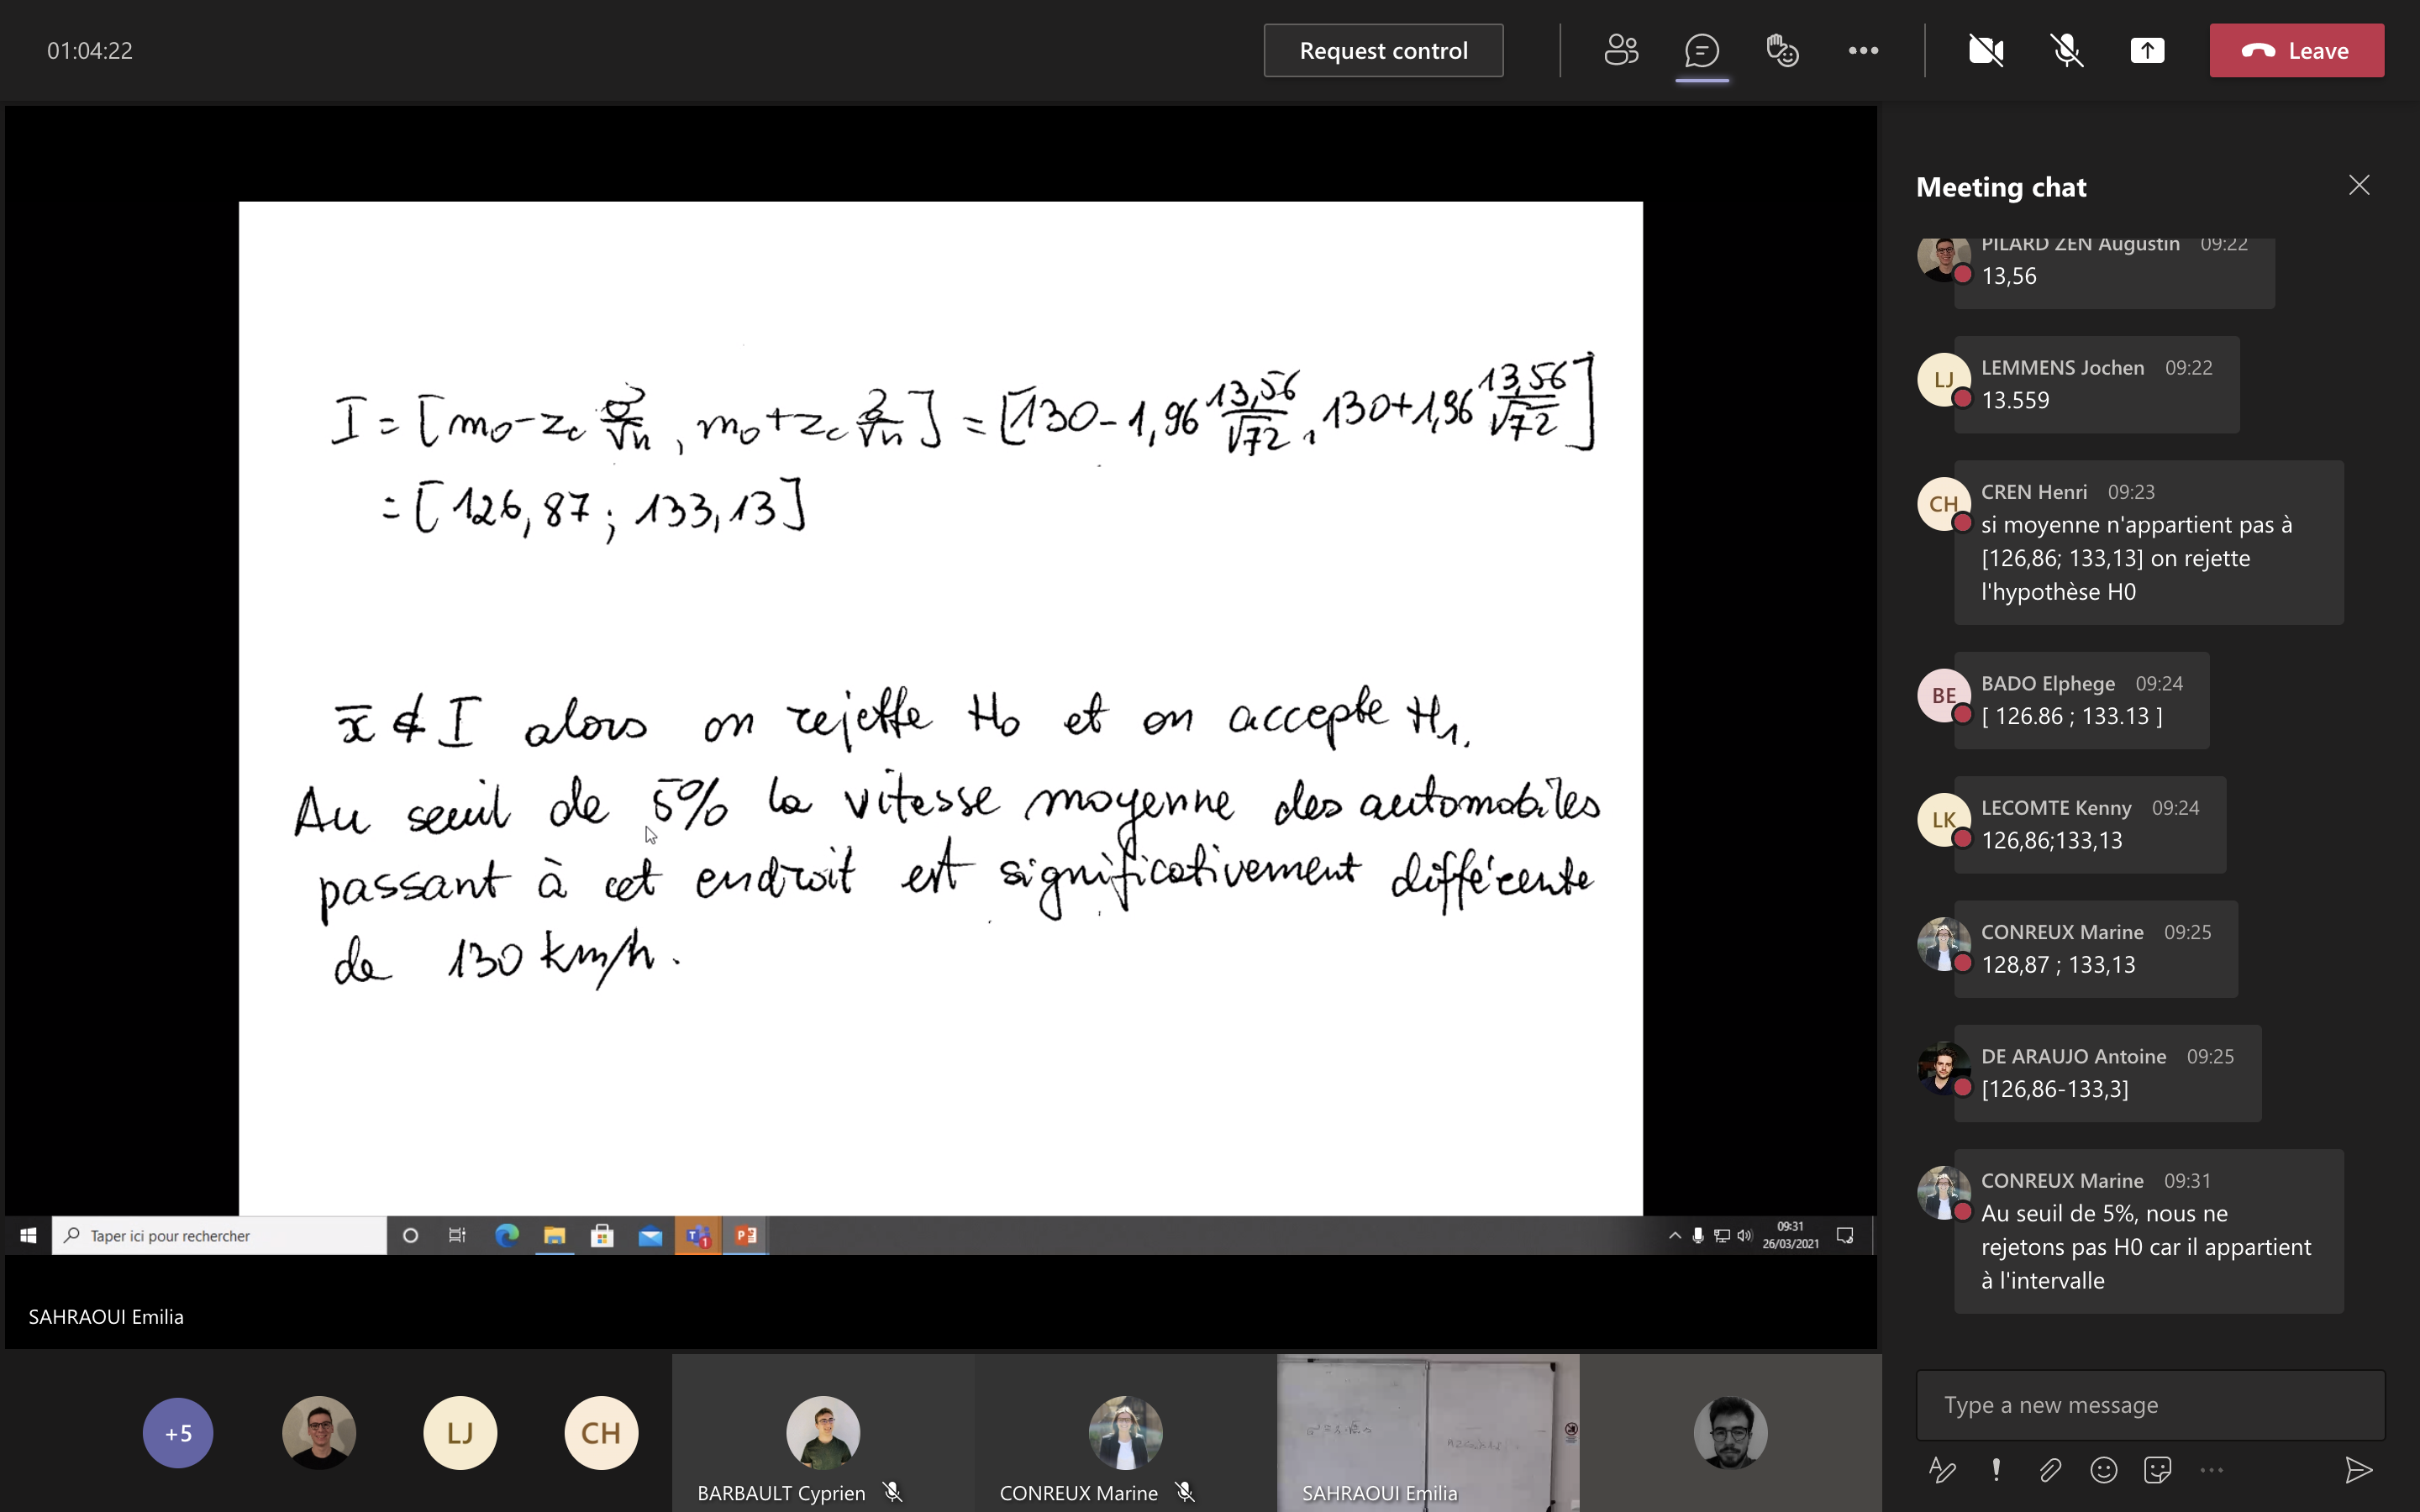 01:04:22
Request control
Leave
I = [m0 - zc σ/√n , m0 + zc σ/√n ] = [130 - 1,96 13,56/√72 , 130 + 1,96 13,56/√72 ]
= [ 126,87 ; 133,13 ]
x̄ ∉ I alors on rejette H0 et on accepte H1.
Au seuil de 5% la vitesse moyenne des automobiles
passant à cet endroit est significativement différente
de 130 km/h.
Taper ici pour rechercher
1
09:31
26/03/2021
SAHRAOUI Emilia
+5
LJ
CH
BARBAULT Cyprien
CONREUX Marine
SAHRAOUI Emilia
Meeting chat
PILARD ZEN Augustin 09:22
13,56
LJ
LEMMENS Jochen 09:22
13.559
CH
CREN Henri 09:23
si moyenne n'appartient pas à
[126,86; 133,13] on rejette
l'hypothèse H0
BE
BADO Elphege 09:24
[ 126.86 ; 133.13 ]
LK
LECOMTE Kenny 09:24
126,86;133,13
CONREUX Marine 09:25
128,87 ; 133,13
DE ARAUJO Antoine 09:25
[126,86-133,3]
CONREUX Marine 09:31
Au seuil de 5%, nous ne
rejetons pas H0 car il appartient
à l'intervalle
Type a new message